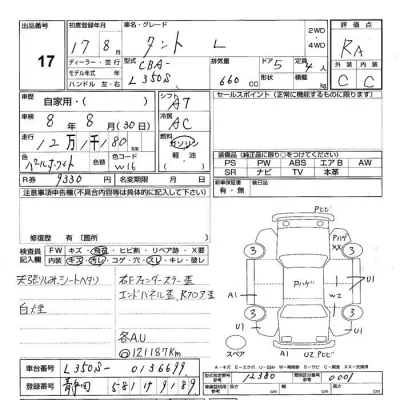 出品番号 初度登録年月 車名・グレード 2WD・4WD 評価点
17
17年 8月 タント L RA
ディーラー・並行
モデル年式
ハンドル 左・右
型式 CBA-L350S-
排気量 660 cc
ドア 5 形状
定員 4人 積載 kg
外装 内装
C C
車歴 自家用・( )
シフト AT
セールスポイント (正常に機能するものに限ります)
車検 8年 8月 (30日)
冷房 AC
走行 12万 1千 180 km
燃料 ガソリン 軽油 ( )
色 パールホワイト カラーNo. W16
R券 9330円 名変期限 月 日
装備品 (純正品に限り○をつけてください)
PS PW ABS エアB AW
SR ナビ TV 本革
注意事項申告欄(不具合内容等は具体的に記入して下さい)
新車保証書 有・無 後日品
修復歴 有 (箇所
検査員記入欄
FW キズ・飛石・ヒビ割・リペア跡・X要
内装 キズ・汚レ・コゲ・穴・スレ・キレ・破レ
天張りしみ,シートヘタリ
白煙
右Fフェンダーステー歪
エンドパネル歪
各A.U
◎121187Km
PビビP
3 3 3 3
Pハゲ
Pハゲ XX
A1 U1 W2
U1 U1
A1 U2.Pビビ
スペア
A・キズ E・エクボ U・凹み W・補修跡 S・サビ C・腐食 XX・交換済
車台番号 L350S-0136699
登録番号 静岡 581 け 9189
型式指定番号 12380 類別区分番号 0001
長さ cm 幅 cm 高さ cm